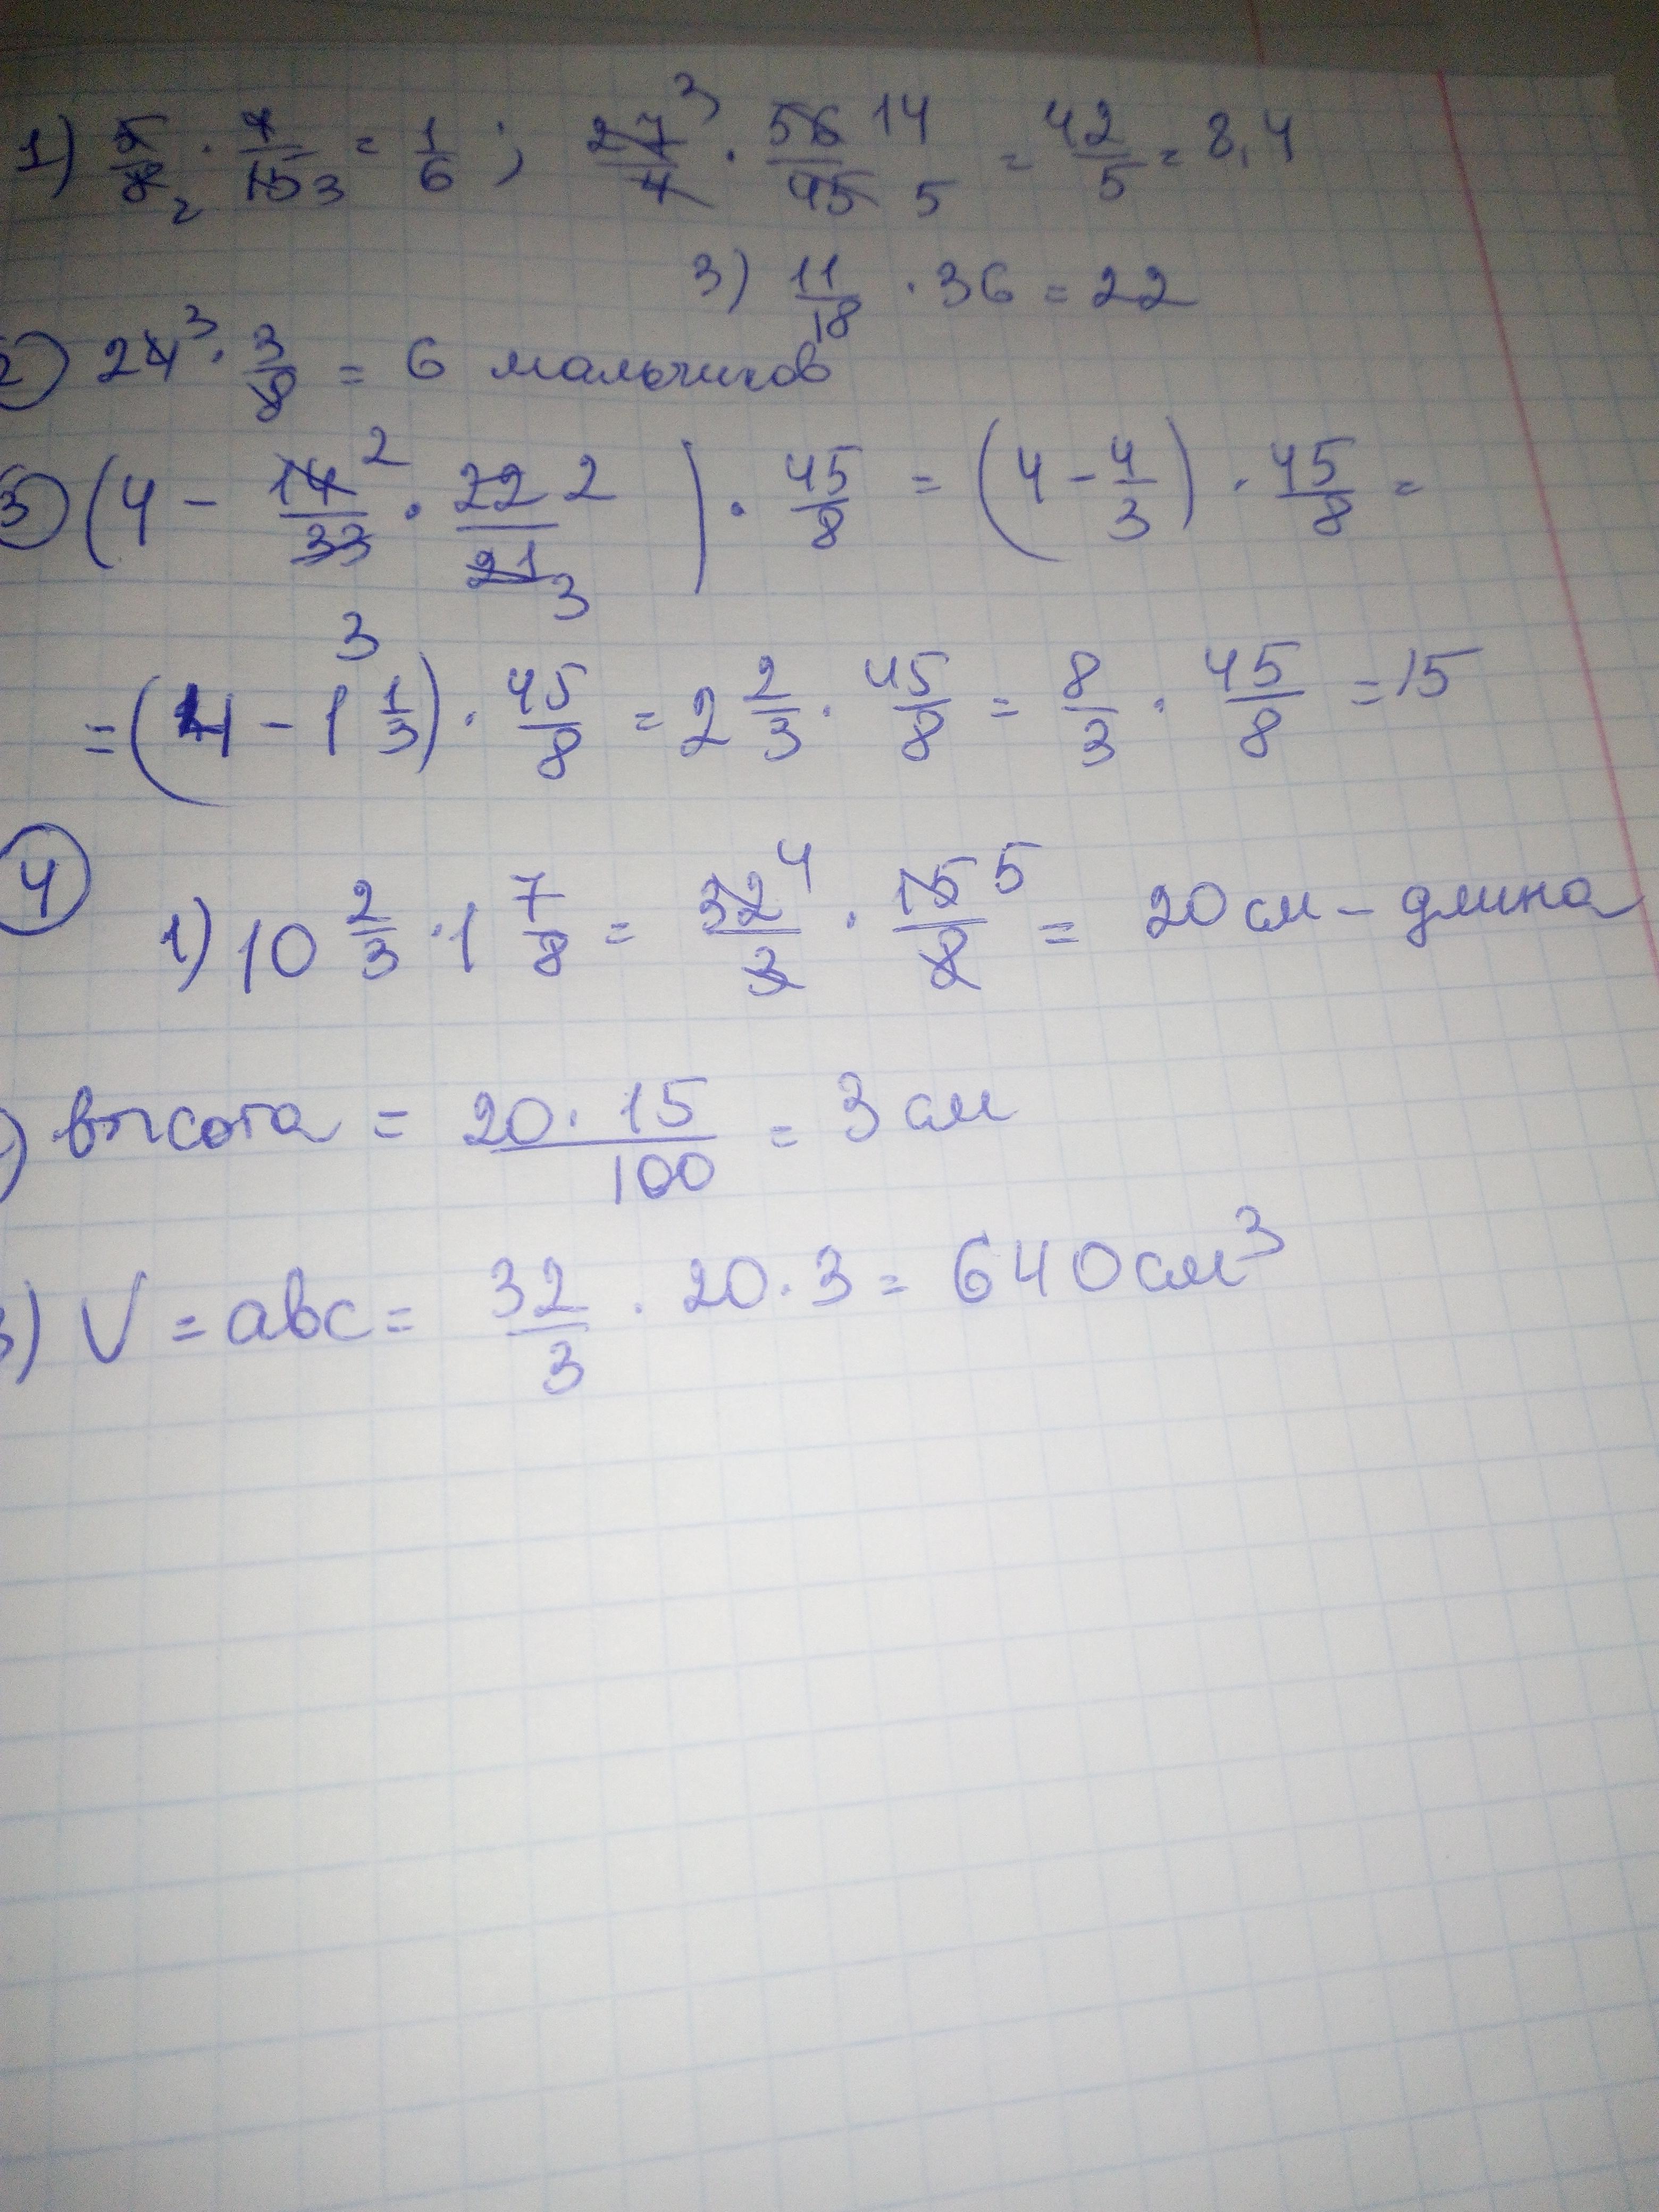 1) 5/8 2 · 4/15 3 = 1/6 ; 27/4 3 · 56/45 14 5 = 42/5 = 8,4
3) 11/18 · 36 = 22
2) 24 3 · 3/8 = 6 мальчиков
3) (4 - 14/33 2 3 · 22/21 2 3) · 45/8 = (4 - 4/3) · 45/8 =
= (4 - 1 1/3) · 45/8 = 2 2/3 · 45/8 = 8/3 · 45/8 = 15
4 1) 10 2/3 · 1 7/8 = 32/3 4 · 15/8 5 = 20 см - длина
) высота = 20 · 15/100 = 3 см
3) V = abc = 32/3 · 20 · 3 = 640 см³